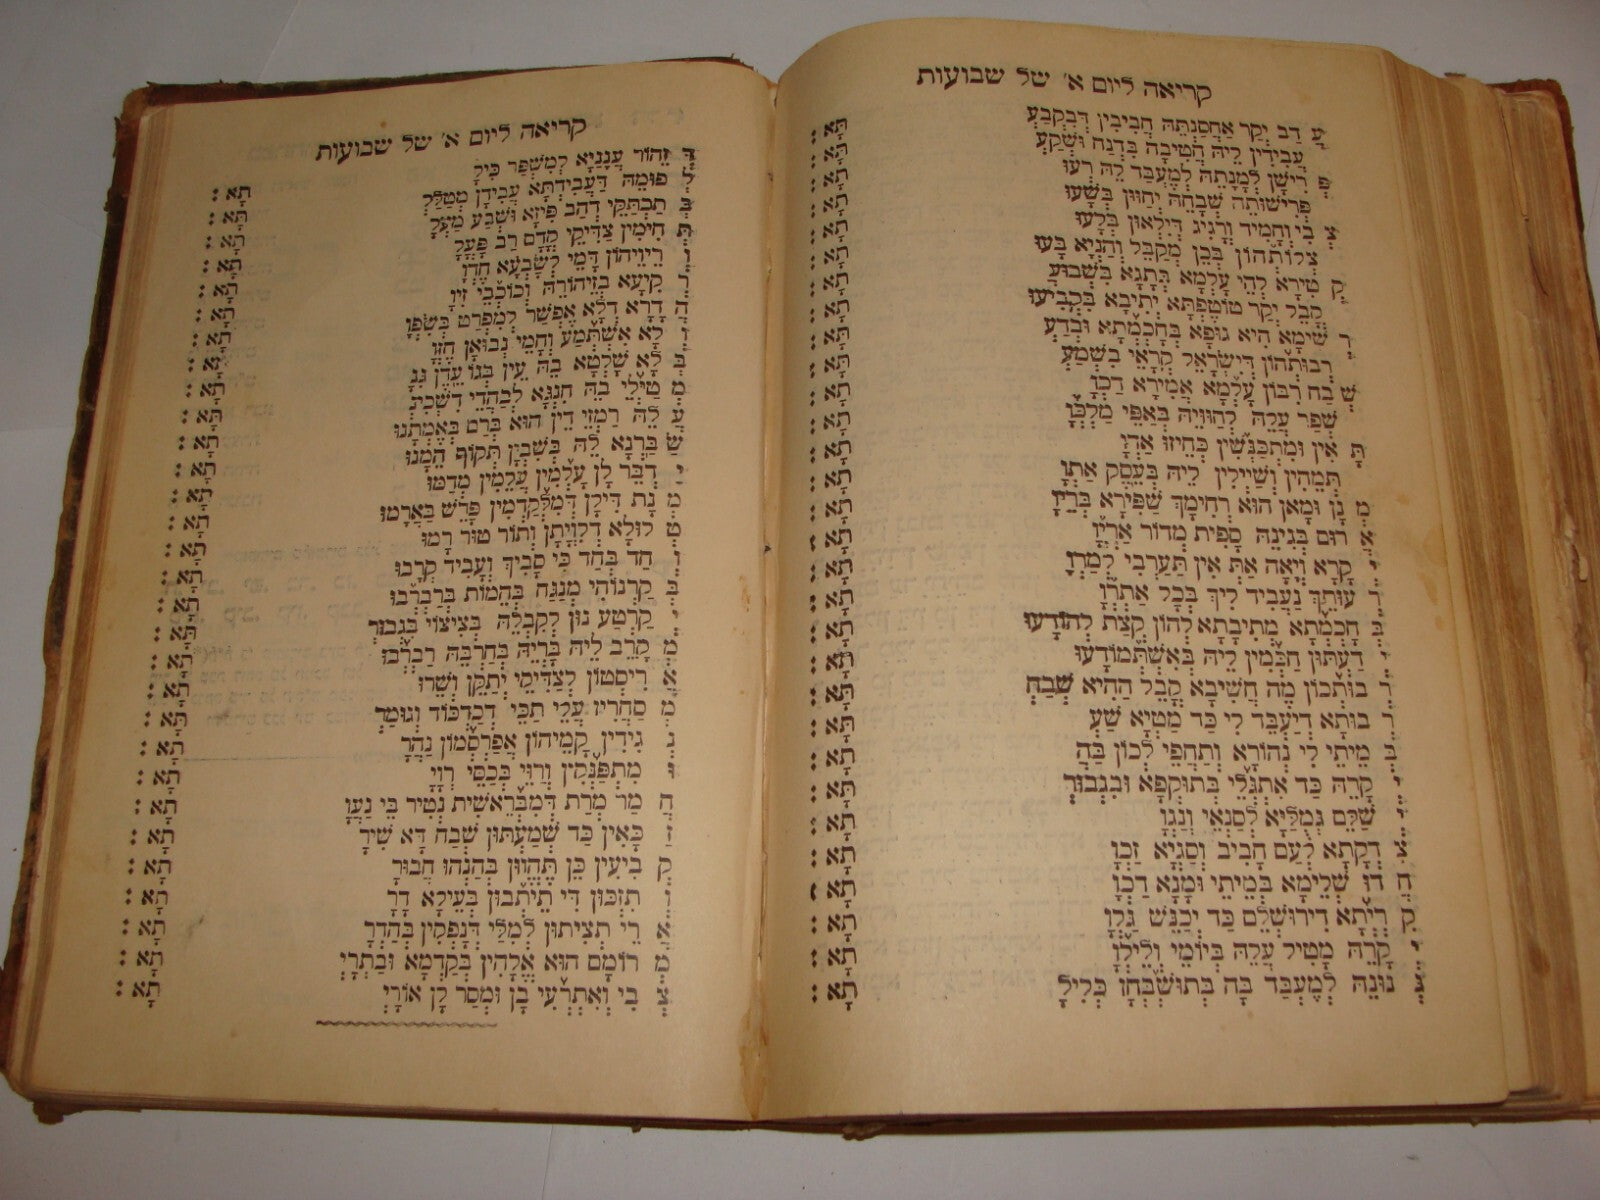 קריאה ליום א׳ של שבועות
עֲ דַב יְקַר אַחְסַנְתֵּהּ חֲבִיבִין דְּבִקְבַעְ תָּא:
עֲבִידִין לֵיהּ חֲטִיבָה בִּדְנַח וּשְׁקַעְ תָּא:
פְּ רִישָׁן לְמָנָתֵהּ לְמֶעְבַּד לֵהּ רְעוּ תָא:
פְּרִישׁוּתֵהּ שְׁבָחֵהּ יְחַוּוּן בְּשָׁעוּ תָא:
צְ בִי וְחָמִיד וְרָגִיג דְּיִלְאוּן בְּלָעוּ תָא:
צְלוֹתְהוֹן בְּכֵן מְקַבֵּל וְהַנְיָא בָעוּ תָא:
קְ טִירָא לְחֵי עָלְמָא בְּתָגָא בִּשְׁבוּעֲ תָא:
קֳבֵל יְקַר טוֹטֶפְתָּא יְתִיבָא בִּקְבִיעוּ תָא:
רְ שִׁימָא הִיא גוּפָא בְּחָכְמְתָא וּבְדַעְ תָּא:
רְבוּתְהוֹן דְּיִשְׂרָאֵל קְרָאֵי בִּשְׁמַעְ תָּא:
שְׁ בַח רִבּוֹן עָלְמָא אֲמִירָא דַכְוָ תָא:
שְׁפַר עֲלֵהּ לְחַוּוּיֵהּ בְּאַפֵּי מַלְכְּוָ תָא:
תָּ אִין וּמִתְכַּנְּשִׁין כְּחֵיזוּ אַדְוָ תָא:
תְּמֵהִין וְשַׁיְילִין לֵיהּ בְּעֵסֶק אַתְוָ תָא:
מְ נָן וּמָאן הוּא רְחִימָךְ שַׁפִּירָא בְּרֵיוָ תָא:
אֲ רוּם בְּגִינֵהּ סָפִית מְדוֹר אַרְיְוָ תָא:
יְ קָרָא וְיָאָה אַתְּ אִין תַּעַרְבִי לְמַרְוָ תָא:
רְ עוּתֵךְ נַעֲבִיד לִיךְ בְּכָל אַתְרְוָ תָא:
בְּ חָכְמְתָא מְתִיבָתָא לְהוֹן קְצָת לְהוֹדָעוּ תָא:
יְ דַעְתּוּן חַכְּמִין לֵיהּ בְּאִשְׁתְּמוֹדָעוּ תָא:
רְ בוּתְכוֹן מֶה חֲשִׁיבָא קֳבֵל הַהִיא שְׁבַחְ תָּא:
רְ בוּתָא דְּיַעֲבֵד לִי כַּד מַטְיָא שַׁעֲ תָא:
בְּ מֵיתֵי לִי נְהוֹרָא וְתַחֲפֵי לְכוֹן בַּהֲ תָא:
יְ קָרֵהּ כַּד אִתְגְּלֵי בְּתוּקְפָא וּבִגְבוּרְ תָּא:
יְ שַׁלֵּם גְּמֻלַּיָּא לְסַנְאֵי וְנַגְוָ תָא:
צִ דְקָתָא לְעַם חָבִיב וְסַגְיָא זַכְוָ תָא:
חֲ דוּ שְׁלֵימָא בְּמֵיתֵי וּמָנָא דַכְוָ תָא:
קִ רְיְתָא דִירוּשְׁלֵם כַּד יְכַנֵּשׁ גַּלְוָ תָא:
יְ קָרֵהּ מָטִיל עֲלַהּ בְּיוֹמֵי וְלֵילְוָ תָא:
גְּ נוּנֵהּ לְמֶעְבַּד בָּהּ בְּתוּשְׁבְּחָן כְּלִילָ תָא:
קריאה ליום א׳ של שבועות
דְּ זֵהוֹר עֲנָנַיָּא לְמִשְׁפַּר כִּילָ תָא:
לְ פוּמֵהּ דַּעֲבִידְתָּא עֲבִידָן מְטַלַּלְ תָּא:
בְּ תַכְתַּקֵּי דְּהַב פִּיזָא וּשְׁבַע מַעֲלָ תָא:
תְּ חִימִין צַדִּיקֵי קֳדָם רַב פָּעֳלָ תָא:
וְ רֵיוֵיהוֹן דָּמֵי לְשָׂבְעָא חֶדְוָ תָא:
רְ קִיעָא בְּזֵיהוֹרֵהּ וְכוֹכְבֵי זִיוָ תָא:
הֲ דָרָא דְּלָא אֶפְשַׁר לְמִפְרַט בְּשִׂפְוָ תָא:
וְ לָא אִשְׁתְּמַע וַחֲמֵי נְבוּאָן חֶזְוָ תָא:
בְּ לָא שָׁלְטָא בֵהּ עֵין בְּגוֹ עֵדֶן גִּנְּ תָא:
מְ טַיְּלֵי בֵהּ חִנְגָּא לְבַהֲדֵי דִשְׁכִינְ תָּא:
עֲ לֵהּ רַמְזֵי דֵּין הוּא בְּרַם בְּאֶמְתָּנוּ תָא:
שַׂ בַּרְנָא לֵהּ בְּשִׁבְיָן תְּקוֹף הֵמָנוּ תָא:
יַ דְבַּר לָן עָלְמִין עֲלֵמִין מְדַמּוּ תָא:
מְ נָת דִּילָן דְּמִלְּקַדְמִין פָּרֵשׁ בַּאֲרָמוּ תָא:
טְ לוּלָא דְלִוְיָתָן וְתוֹר טוּר רָמוּ תָא:
וְ חַד בְּחַד כִּי סָבִיךְ וְעָבִיד קְרָבוּ תָא:
בְּ קַרְנוֹהִי מְנַגַּח בְּהֵמוֹת בְּרַבְרְבוּ תָא:
יְ קַרְטַע נוּן לְקִבְלֵהּ בְּצִיצוֹי בִּגְבוּרְ תָּא:
מְ קָרֵב לֵיהּ בָּרְיֵהּ בְּחַרְבֵּהּ רַבְרְבוּ תָא:
אֲ רִיסְטוֹן לְצַדִּיקֵי יְתַקֵּן וְשֵׁרוּ תָא:
מְ סַחֲרִין עֲלֵי תַכֵּי דְכַדְכּוֹד וְגוּמַרְ תָּא:
נְ גִידִין קַמֵּיהוֹן אֲפַרְסְמוֹן נַהֲרָ תָא:
וּ מִתְפַּנְּקִין וְרָווּ בְּכַסֵּי רְוָיָ תָא:
חֲ מַר מְרַת דְּמִבְּרֵאשִׁית נְטִיר בֵּי נַעֲוָ תָא:
זַ כָּאִין כַּד שְׁמַעְתּוּן שְׁבַח דָּא שִׁירָ תָא:
קְ בִיעִין כֵּן תֶּהֱווֹן בְּהַנְהוּ חֲבוּרָ תָא:
וְ תִזְכּוּן דִּי תֵיתְבוּן בְּעֵילָא דָרָ תָא:
אֲ רֵי תְצִיתוּן לְמִלַּי דְּנָפְקִין בְּהַדְרָ תָא:
מְ רוֹמָם הוּא אֱלָהִין בְּקַדְמָא וּבַתְרָיְ תָא:
צְ בִי וְאִתְרְעִי בָן וּמְסַר לָן אוֹרָיְ תָא: